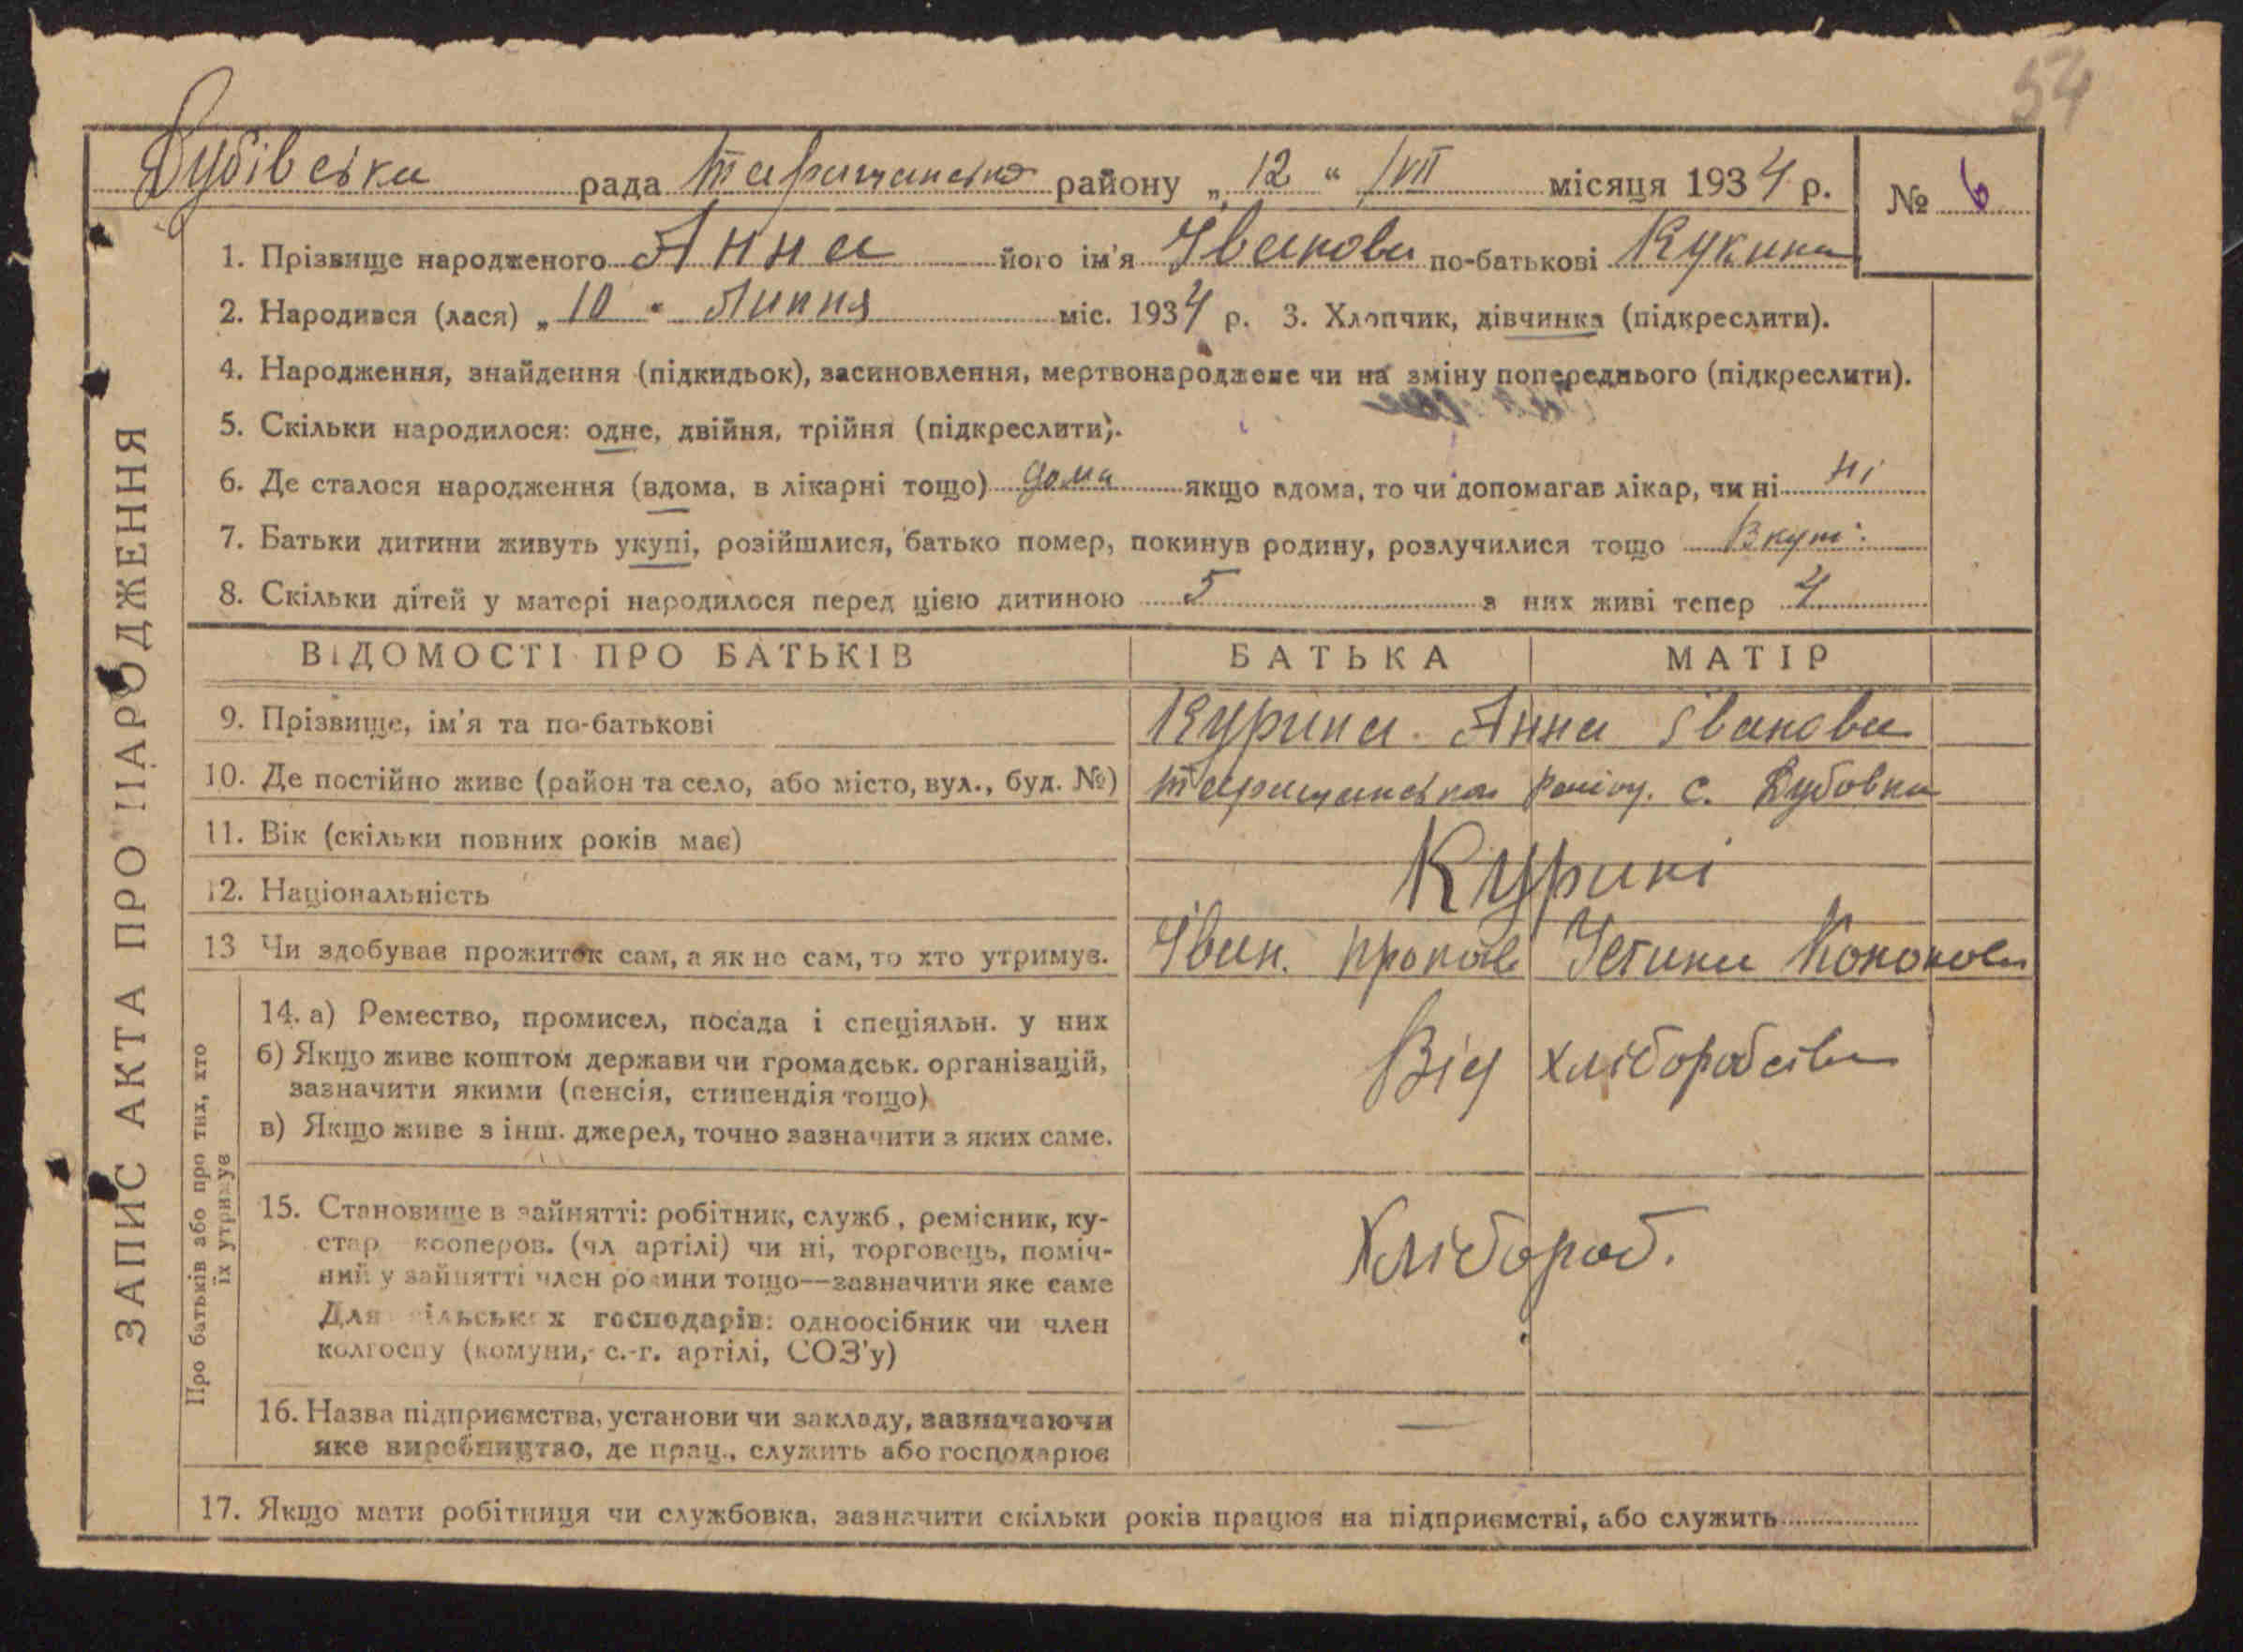 54
Дубівська рада Таращансько району „ 12 “ /VII місяця 1934 р. № 6
1. Прізвище народженого Анна його ім'я Іванова по-батькові Кукина
2. Народився (лася) „ 10 “ Липня міс. 1934 р. 3. Хлопчик, дівчинка (підкреслити).
4. Народження, знайдення (підкидьок), засиновлення, мертвонароджене чи на зміну попереднього (підкреслити).
5. Скільки народилося: одне, двійня, трійня (підкреслити).
6. Де сталося народження (вдома, в лікарні тощо) дома якщо вдома, то чи допомагав лікар, чи ні ні
7. Батьки дитини живуть укупі, розійшлися, батько помер, покинув родину, розлучилися тощо Вкупі
8. Скільки дітей у матері народилося перед цією дитиною 5 з них живі тепер 4
ВІДОМОСТІ ПРО БАТЬКІВ БАТЬКА МАТІР
9. Прізвище, ім'я та по-батькові Курина Анна Іванова
10. Де постійно живе (район та село, або місто, вул., буд. №) Таращанськоо району. с. Дубовка
11. Вік (скільки повних років має)
12. Національність Курині
13 Чи здобуває прожиток сам, а як не сам, то хто утримує. Іван. Устина Кононова
14. а) Ремество, промисел, посада і спеціяльн. у них
б) Якщо живе коштом держави чи громадськ. організацій, Від хліборобства
зазначити якими (пенсія, стипендія тощо)
в) Якщо живе з інш. джерел, точно зазначити з яких саме.
15. Становище в зайнятті: робітник, служб, ремісник, ку-
стар кооперов. (чл артілі) чи ні, торговець, поміч- Хлібороб.
ний у зайнятті член родини тощо—зазначити яке саме
Для сільських господарів: одноосібник чи член
колгоспу (комуни, с.-г. артілі, СОЗ'у)
16. Назва підприємства, установи чи закладу, зазначаючи —
яке виробництво, де прац., служить або господарює
17. Якщо мати робітниця чи службовка, зазначити скільки років працює на підприємстві, або служить
ЗАПИС АКТА ПРО НАРОДЖЕННЯ
Про батьків або про тих, хто
їх утримує